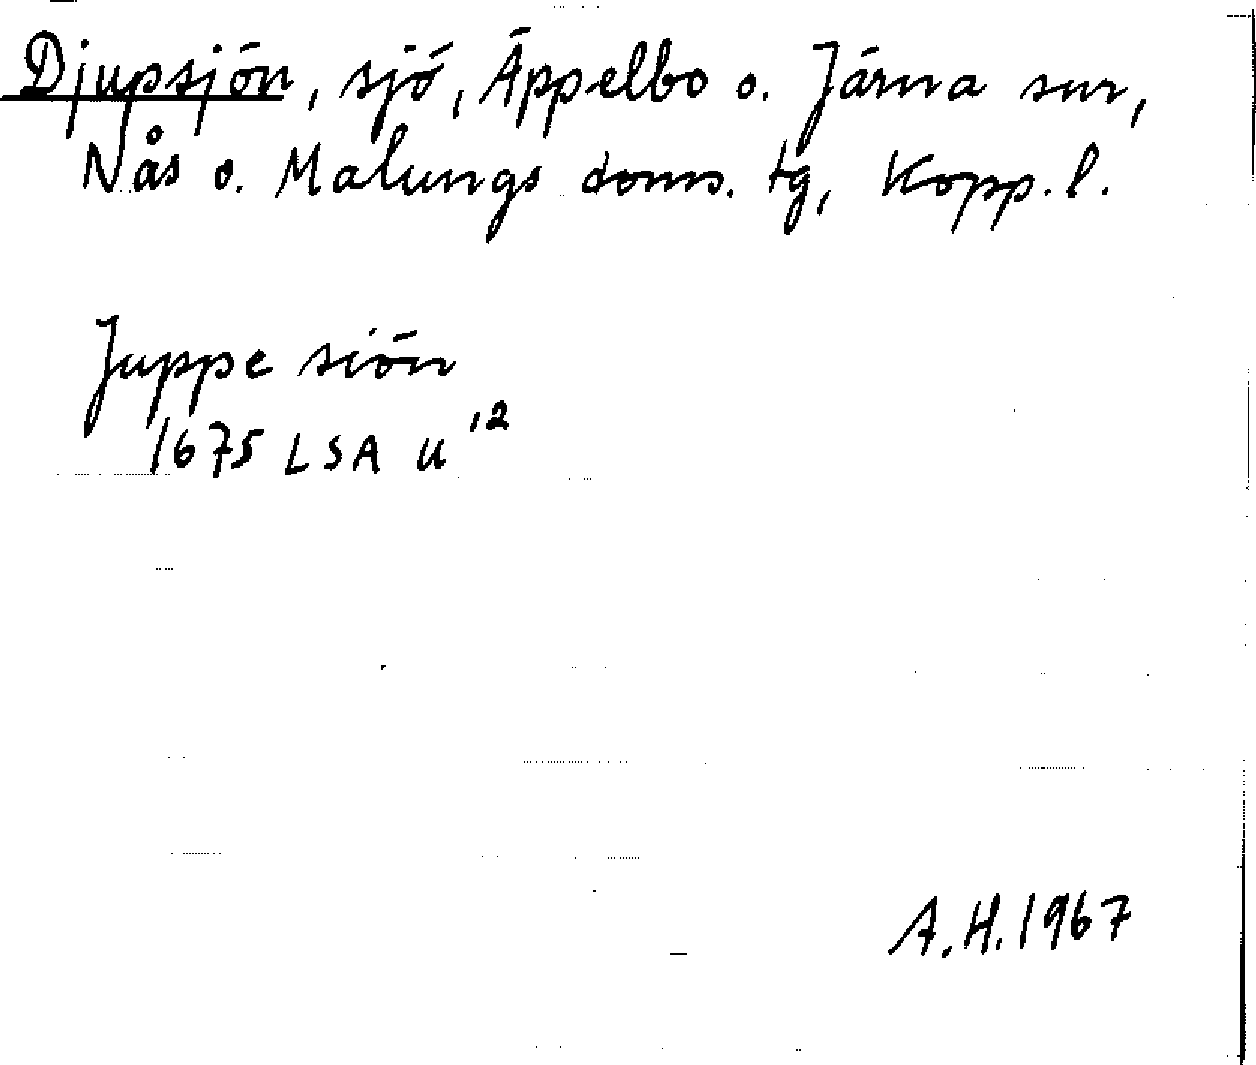 Djupsjön, sjö, Äppelbo o. Järna snr,
Nås o. Malungs doms. tg, Kopp. l.
Juppe siön
1675 LSA U '2
A.H. 1967